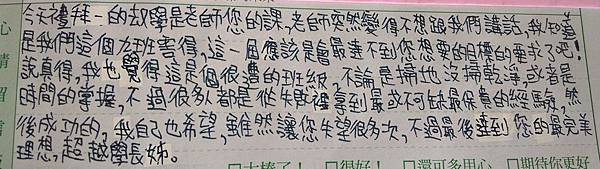 今天禮拜一的數學是老師您的課,老師突然變得不想跟我們講話,我知道
是我們這個九班害得,這一個應該是會最達不到您想要的目標的要求了吧!
說真得,我也覺得這是個很遭的班級,不論是掃地沒掃乾淨,或者是
時間的掌握,不過很多人都是從失敗裡拿到最或不可缺最保貴的經驗,然
後成功的,我自己也希望,雖然讓您失望很多次,不過最後達到您的最完美
理想,超越學長姊。
心
情
留
言
□太棒了! □很好! □還可多用心 □期待你更好